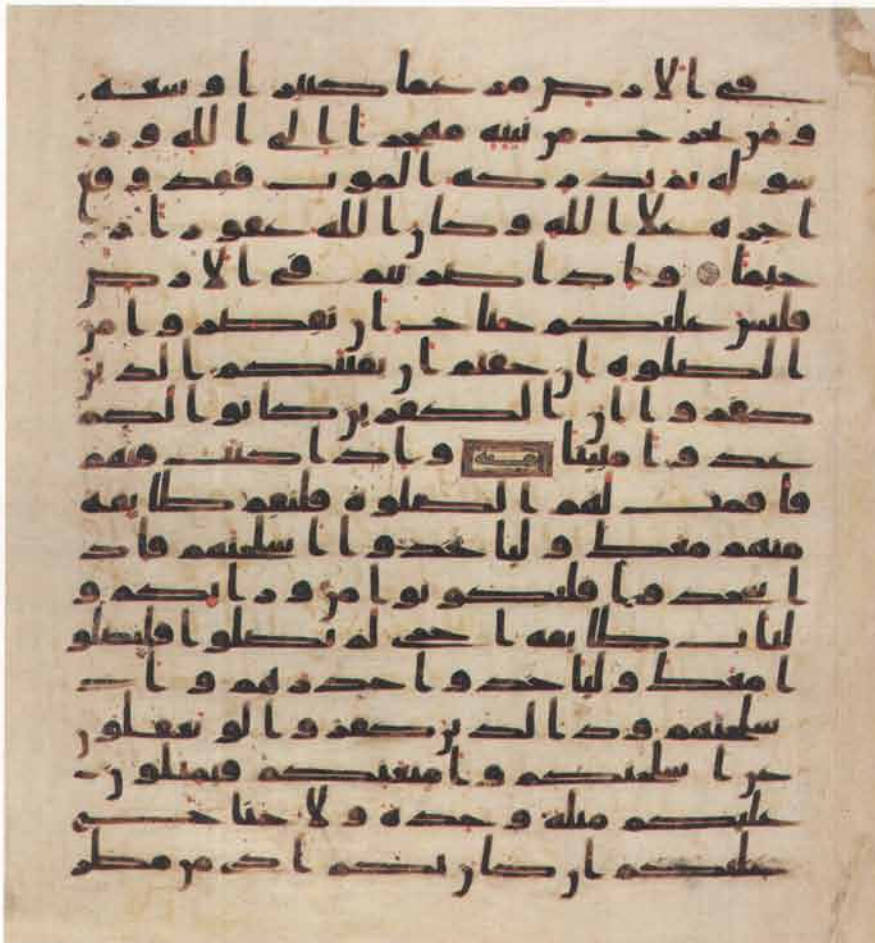 فى الارض مرغما كثيرا وسعة
ومن يخرج من بيته مهجرا الى الله ور
سوله ثم يدركه الموت فقد وقع
اجره علا الله وكان الله غفورا ر
حيما واذا ضربتم فى الارض
فليس عليكم جناح ان تقصروا من
الصلوة ان خفتم ان يفتنكم الذين
كفروا ان الكفرين كانوا لكم
عدوا مبينا واذا كنت فيهم
فاقمت لهم الصلوة فلتقم طايفة
منهم معك ولياخذوا اسلحتهم فاذ
ا سجدوا فليكونوا من ورايكم و
لتات طايفة اخرى لم يصلوا فليصلو
ا معك ولياخذوا حذرهم وا
سلحتهم ود الذين كفروا لو تغفلون
عن اسلحتكم وامتعتكم فيميلون
عليكم ميلة وحدة ولا جناح
عليكم ان كان بكم اذى من مطر